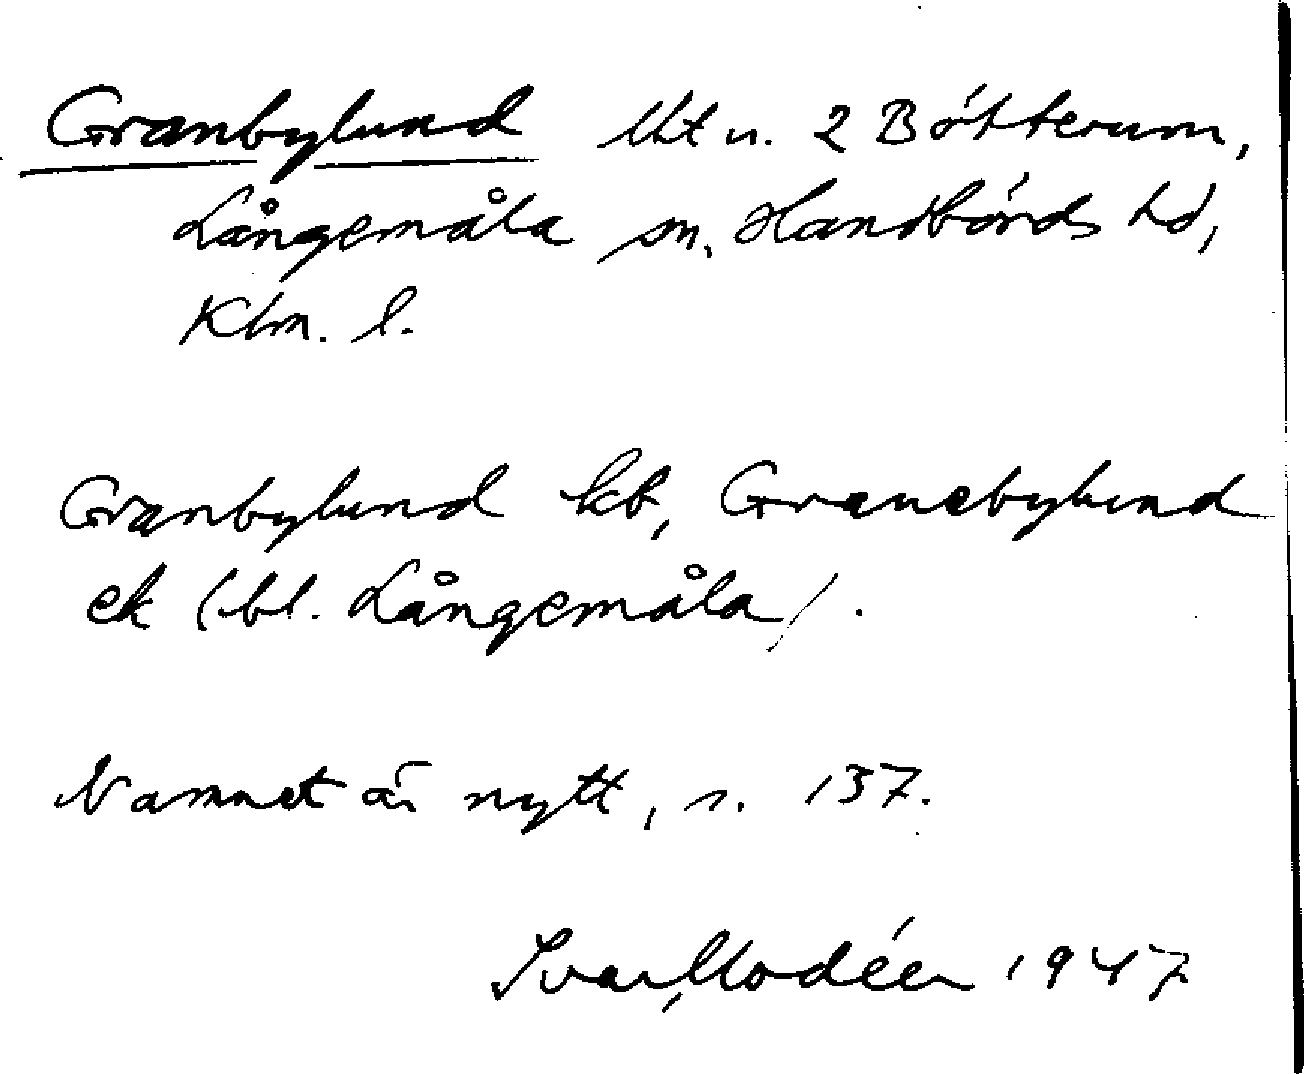 Granbylund lht u. 2 Bötterum,
Långemåla sn, Handbörds hd,
Klm. l.
Granbylund kb, Granebylund
ek (bl. Långemåla).
Namnet är nytt, s. 137.
Ivar Modéer 1947